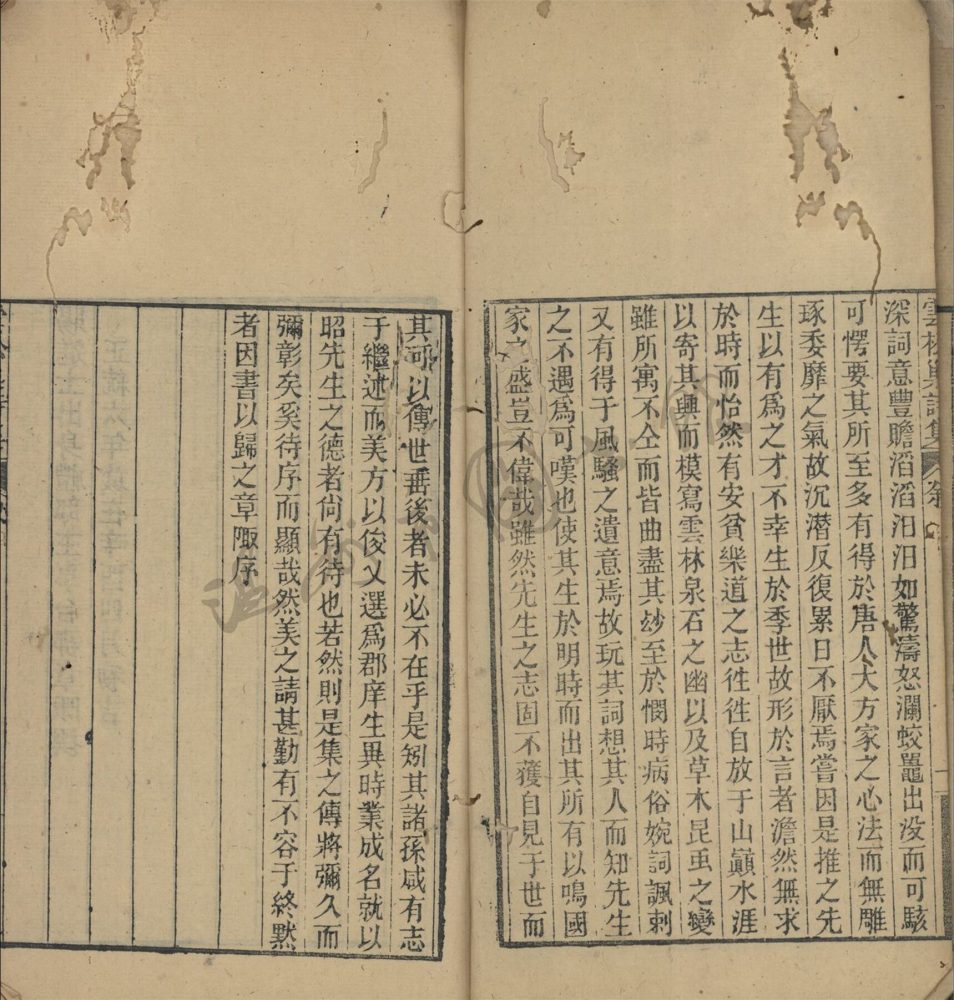 深詞意豐贍滔滔汩汩如驚濤怒瀾蛟鼉出没而可駭
可愕要其所至多有得於唐人大方家之心法而無雕
琢委靡之氣故沉潜反復累日不厭焉嘗因是推之先
生以有爲之才不幸生於季世故形於言者澹然無求
於時而怡然有安貧樂道之志徃徃自放于山巔水涯
以寄其興而模寫雲林泉石之幽以及草木昆虫之變
雖所寓不仝而皆曲盡其玅至於憫時病俗婉詞諷刺
又有得于風騷之遺意焉故玩其詞想其人而知先生
之不遇爲可嘆也使其生於明時而出其所有以鳴國
家之盛豈不偉哉雖然先生之志固不獲自見于世而
其可以傳世垂後者未必不在乎是矧其諸孫咸有志
于繼述而美方以俊乂選爲郡庠生異時業成名就以
昭先生之德者尙有待也若然則是集之傳將彌久而
彌彰矣奚待序而顯哉然美之請甚勤有不容于終黙
者因書以歸之章陬序